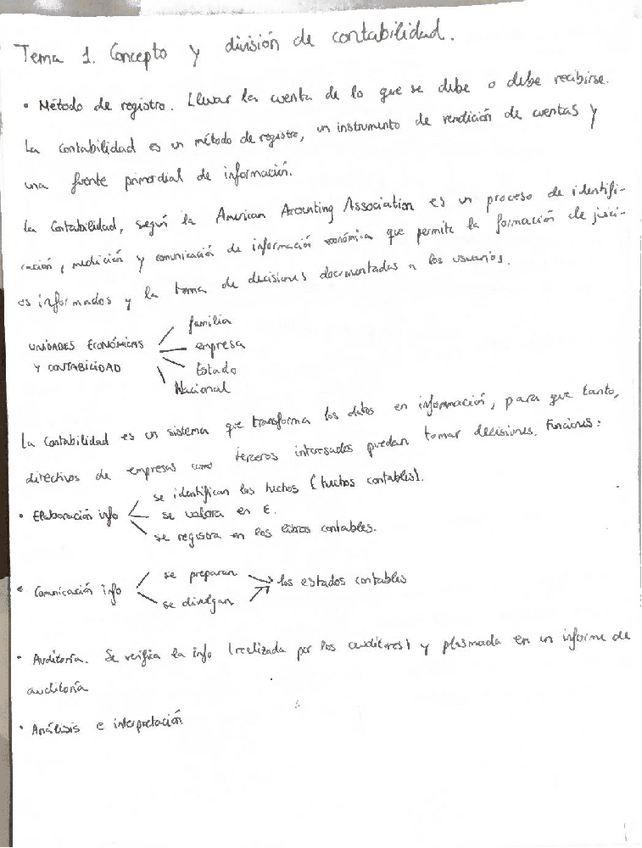 Tema 1. Concepto y división de contabilidad.
• Método de registro. Llevar la cuenta de lo que se debe o debe recibirse.
La contabilidad es un método de registro, un instrumento de rendición de cuentas y
una fuente primordial de información.
La Contabilidad, según la American Acounting Association es un proceso de identifi-
cación, medición y comunicación de información económica que permite la formación de juici-
os informados y la toma de decisiones documentadas a los usuarios.
UNIDADES ECONÓMICAS Y CONTABILIDAD
familia
empresa
Estado
Nacional
La contabilidad es un sistema que transforma los datos en información, para que tanto,
directivos de empresas como terceros interesados puedan tomar decisiones. Funciones:
• Elaboración info
se identifican los hechos (hechos contables).
se valora en €.
se registra en los libros contables.
• Comunicación info
se preparan
se divulgan
los estados contables
• Auditoría. Se verifica la info (realizada por los auditores) y plasmada en un informe de
auditoría
• Análisis e interpretación